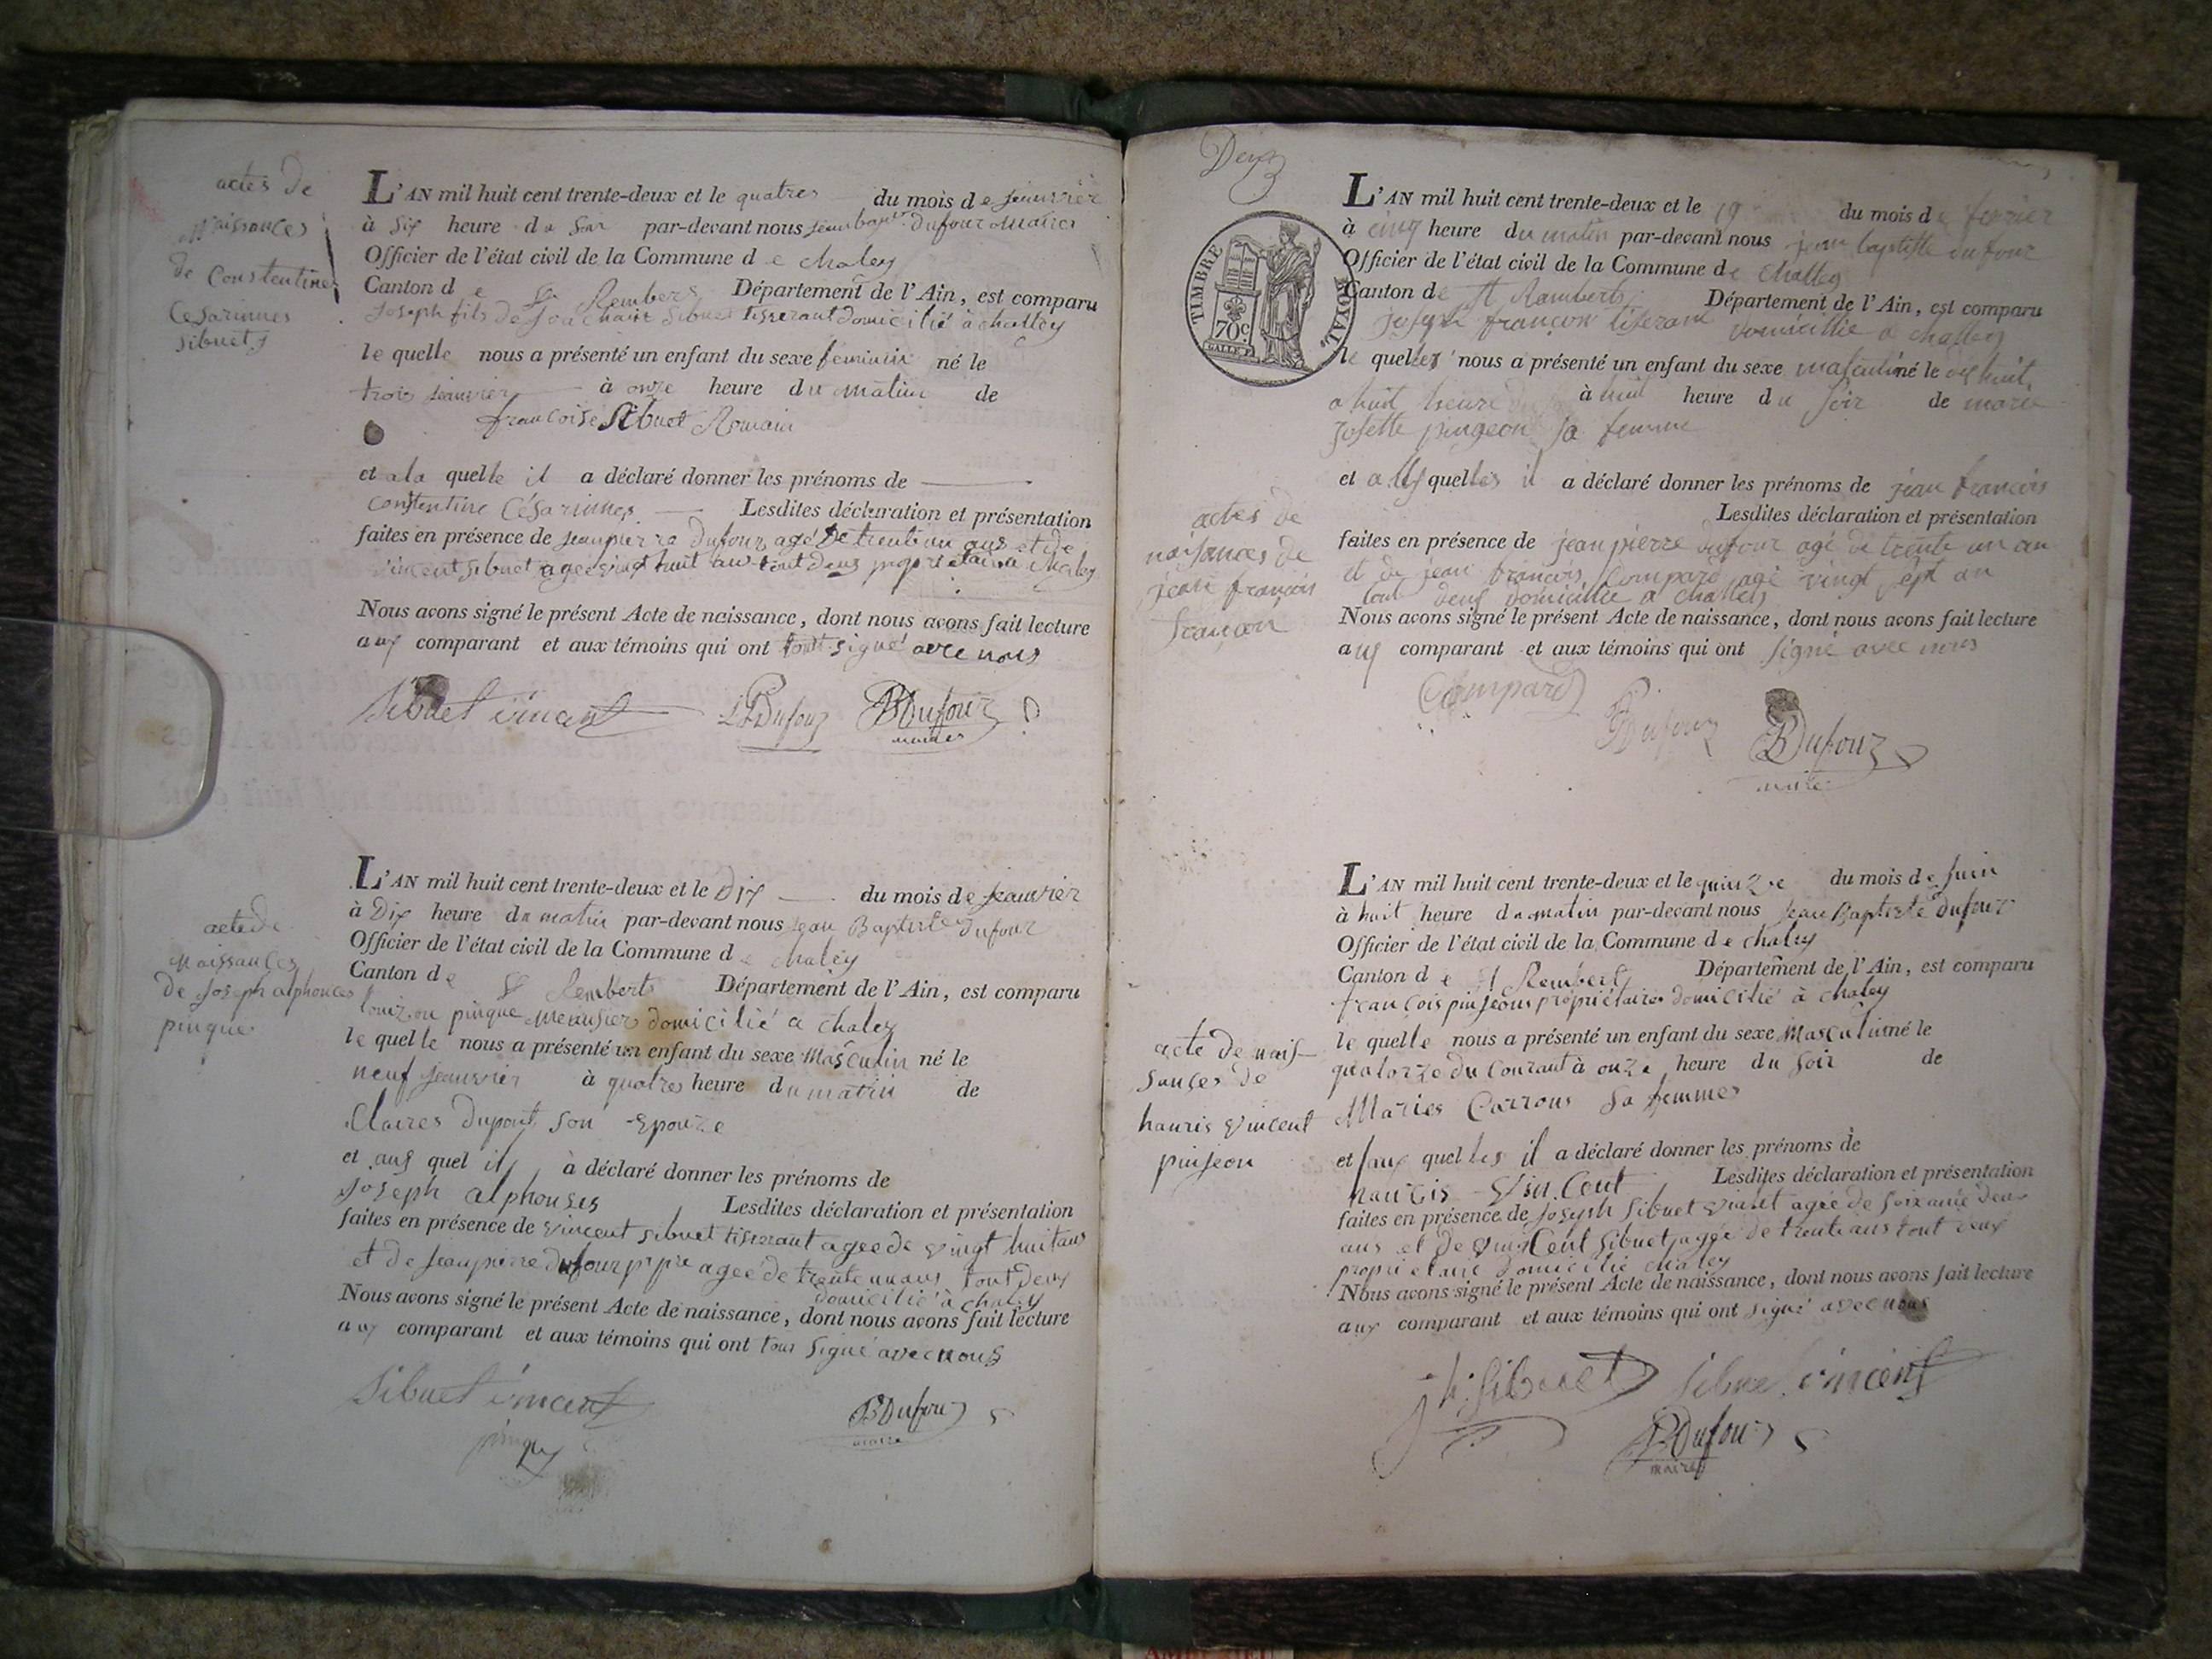 actes de
Naissances
de Constentine
Cesarinnes
sibuet
L'AN mil huit cent trente-deux et le quatres du mois de jeanvrier
à six heure du soir par-devant nous jean bapt dufour Maires
Officier de l'état civil de la Commune de chaley
Canton de St Rembers Département de l'Ain, est comparu
Joseph fils de Sibuet tisserant domicilié à challey
le quelle nous a présenté un enfant du sexe feminin né le
trois jeanvrier à onze heure du matin de
francoise Sibuet Romain
et a la quelle il a déclaré donner les prénoms de
constentine Césarinnes Lesdites déclaration et présentation
faites en présence de jeanpierre Dufour agé de trent un ans et de
vincent sibuet agee vingt huit ans tout deus propriétaire a chaley
Nous avons signé le présent Acte de naissance, dont nous avons fait lecture
aux comparant et aux témoins qui ont tout signé avec nous
Sibuet vincent JPDufour BDufour
maires
acte de
Naissances
de joseph alphonces
pinque
L'AN mil huit cent trente-deux et le Dix du mois de jeanvrier
à Dix heure du matin par-devant nous jean Baptiste Dufour
Officier de l'état civil de la Commune de chaley
Canton de St Remberts Département de l'Ain, est comparu
pinque menusier domicilié a chaley
le quelle nous a présenté un enfant du sexe Masculin né le
neuf jeanvrier à quatres heure du matin de
Claires Dupont son Epouze
et aux quel il à déclaré donner les prénoms de
Joseph alphonses Lesdites déclaration et présentation
faites en présence de vincent sibuet tiserant agee de vingt huit ans
et de jeanpierre dufour ppre agee de trente un ans tout deux
domicilié à chaley
Nous avons signé le présent Acte de naissance, dont nous avons fait lecture
aux comparant et aux témoins qui ont tous signé avec nous
Sibuet vincent BDufour
maire
Deux
TIMBRE ROYAL
70c.
L'AN mil huit cent trente-deux et le 19 du mois de fevrier
à cinq heure du matin par-devant nous jean baptiste dufour
Officier de l'état civil de la Commune de challey
Canton de St Ramberts Département de l'Ain, est comparu
joseph françon tiserant domicillie a challey
le quelles nous a présenté un enfant du sexe masculin né le dix huit
a huit heure du à huit heure du soir de marie
josette pingeon sa femme
et a quelles il a déclaré donner les prénoms de jean francois
Lesdites déclaration et présentation
actes de
naissances de
jean françois
françon
faites en présence de jean pierre dufour agé de trente un an
et de jean francois Compard age vingt sept an
tout deux domicillie a challey
Nous avons signé le présent Acte de naissance, dont nous avons fait lecture
aux comparant et aux témoins qui ont signé avec nous
Compard
PDufour BDufour
maire
L'AN mil huit cent trente-deux et le quinze du mois de juin
à huit heure du matin par-devant nous jean Baptiste dufour
Officier de l'état civil de la Commune de chaley
Canton de St Rembert Département de l'Ain, est comparu
françois pinjeons propriétaires domicilié à chaley
le quelle nous a présenté un enfant du sexe Masculin né le
quatorze du Courant à onze heure du soir de
Maries Carrons Sa femmes
acte de nais-
sances de
hauris vincent
pinjeon
et aux quelles il a déclaré donner les prénoms de
hauris vincent Lesdites déclaration et présentation
faites en présence de Joseph Sibuet agée de soixante deux
ans et de vincent Sibuet agée de trent ans tout deux
propriétaire domicilié chaley
Nous avons signé le présent Acte de naissance, dont nous avons fait lecture
aux comparant et aux témoins qui ont signé avec nous
jh Sibuet Sibuet vincent
BDufour
maires